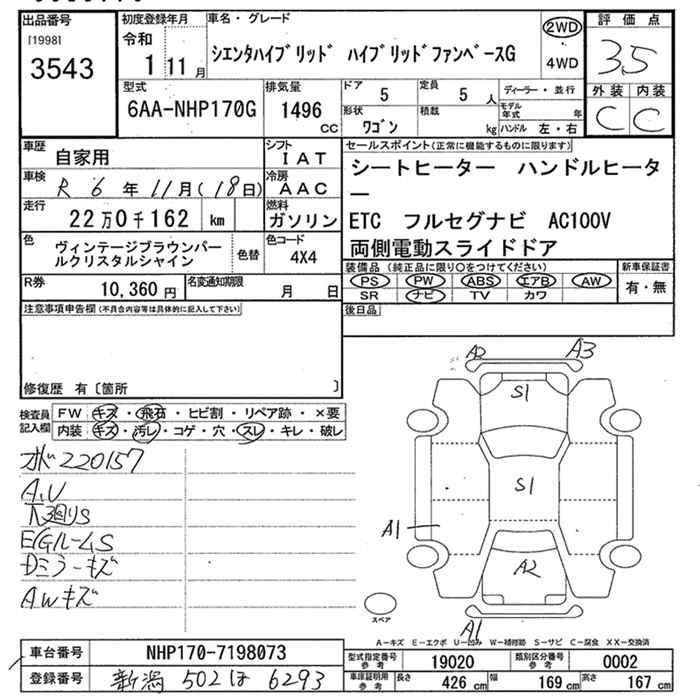 出品番号
[1998]
3543
初度登録年月
令和
1 11月
車名・グレード
シエンタハイブリッド ハイブリッドファンベースG
2WD
4WD
評価点
3.5
外装 内装
C C
型式
6AA-NHP170G
排気量
1496
cc
ドア
5
定員
5 人
形状
ワゴン
積載
kg
ディーラー・並行
モデル年式 年
ハンドル 左・右
車歴
自家用
シフト
IAT
車検
R 6 年 11月(18日)
冷房
AAC
走行
22万0千162 km
燃料
ガソリン
色
ヴィンテージブラウンパールクリスタルシャイン
色替
色コード
4X4
R券
10,360円
名変通知期限
月 日
セールスポイント(正常に機能するものに限ります)
シートヒーター ハンドルヒーター
ETC フルセグナビ AC100V
両側電動スライドドア
装備品(純正品に限り○をつけてください)
PS PW ABS エアB AW
SR ナビ TV カワ
新車保証書
有・無
注意事項申告欄(不具合内容等は具体的に記入して下さい)
後日品
修復歴 有 [箇所 ]
検査員記入欄
FW キズ・飛石・ヒビ割・リペア跡・×要
内装 キズ・汚レ・コゲ・穴・スレ・キレ・破レ
220157
A,U
下廻りS
E/GルームS
Dミラーキズ
AWキズ
A2 A3
S1
S1
A1
A2
A1
スペア
A-キズ E-エクボ U-凹み W-補修跡 S-サビ C-腐食 XX-交換済
車台番号
NHP170-7198073
登録番号
新潟 502 ほ 6293
型式指定番号
参考
19020
類別区分番号
参考
0002
車庫証明用
参考
長さ
426 cm
幅
169 cm
高さ
167 cm